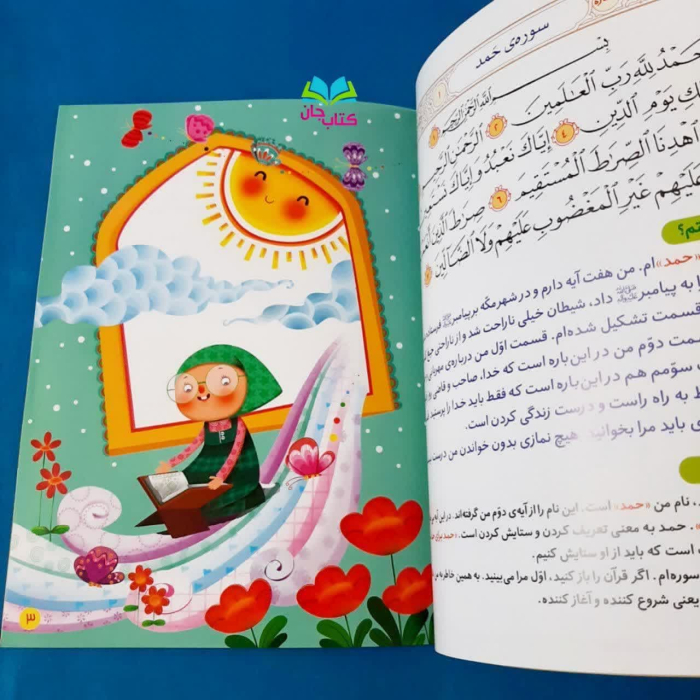 کتاب جان
۳
سوره‌ی حمد
بِسْمِ ٱللَّهِ ٱلرَّحْمَٰنِ ٱلرَّحِيمِ ۱
حَمْدُ لِلَّهِ رَبِّ ٱلْعَٰلَمِينَ ۲ ٱلرَّحْمَٰنِ ٱلرَّحِيمِ
يَوْمِ ٱلدِّينِ ۴ إِيَّاكَ نَعْبُدُ وَإِيَّاكَ
ٱهْدِنَا ٱلصِّرَٰطَ ٱلْمُسْتَقِيمَ ۶ صِرَٰطَ ٱلَّذِينَ
عَلَيْهِمْ غَيْرِ ٱلْمَغْضُوبِ عَلَيْهِمْ وَلَا ٱلضَّآلِّينَ
«حمد» ام. من هفت آیه دارم و در شهر مکّه بر پیامبر ﷺ
را به پیامبر ﷺ داد، شیطان خیلی ناراحت شد و از ناراحتی
قسمت تشکیل شده‌ام. قسمت اوّل من درباره‌ی
دوّم من در این باره است که خدا، صاحب و قاضی
سوّمم هم در این باره است که فقط باید خدا را
به راه راست و درست زندگی کردن است.
باید مرا بخوانید. هیچ نمازی بدون خواندن من درست
نام من «حمد» است. این نام را از آیه‌ی دوّم من گرفته‌اند. در این
حمد به معنی تعریف کردن و ستایش کردن است.
است که باید از او ستایش کنیم.
سوره‌ام. اگر قرآن را باز کنید، اوّل مرا می‌بینید. به همین خاطر
یعنی شروع کننده و آغاز کننده.